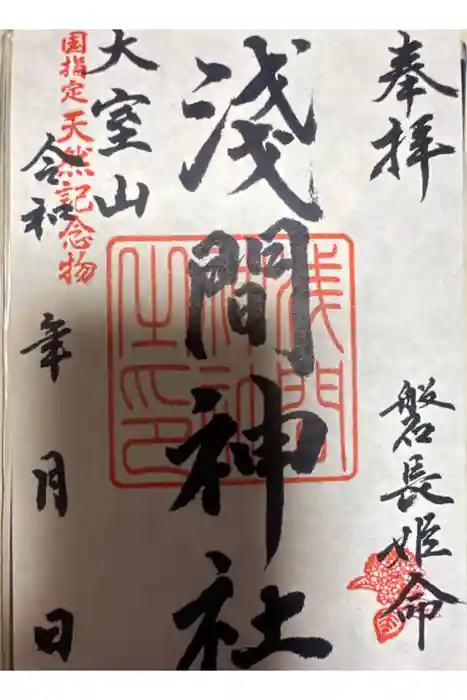 奉拝
磐長姫命
淺間神社
浅間神社之印
大室山
国指定天然記念物
令和 年 月 日